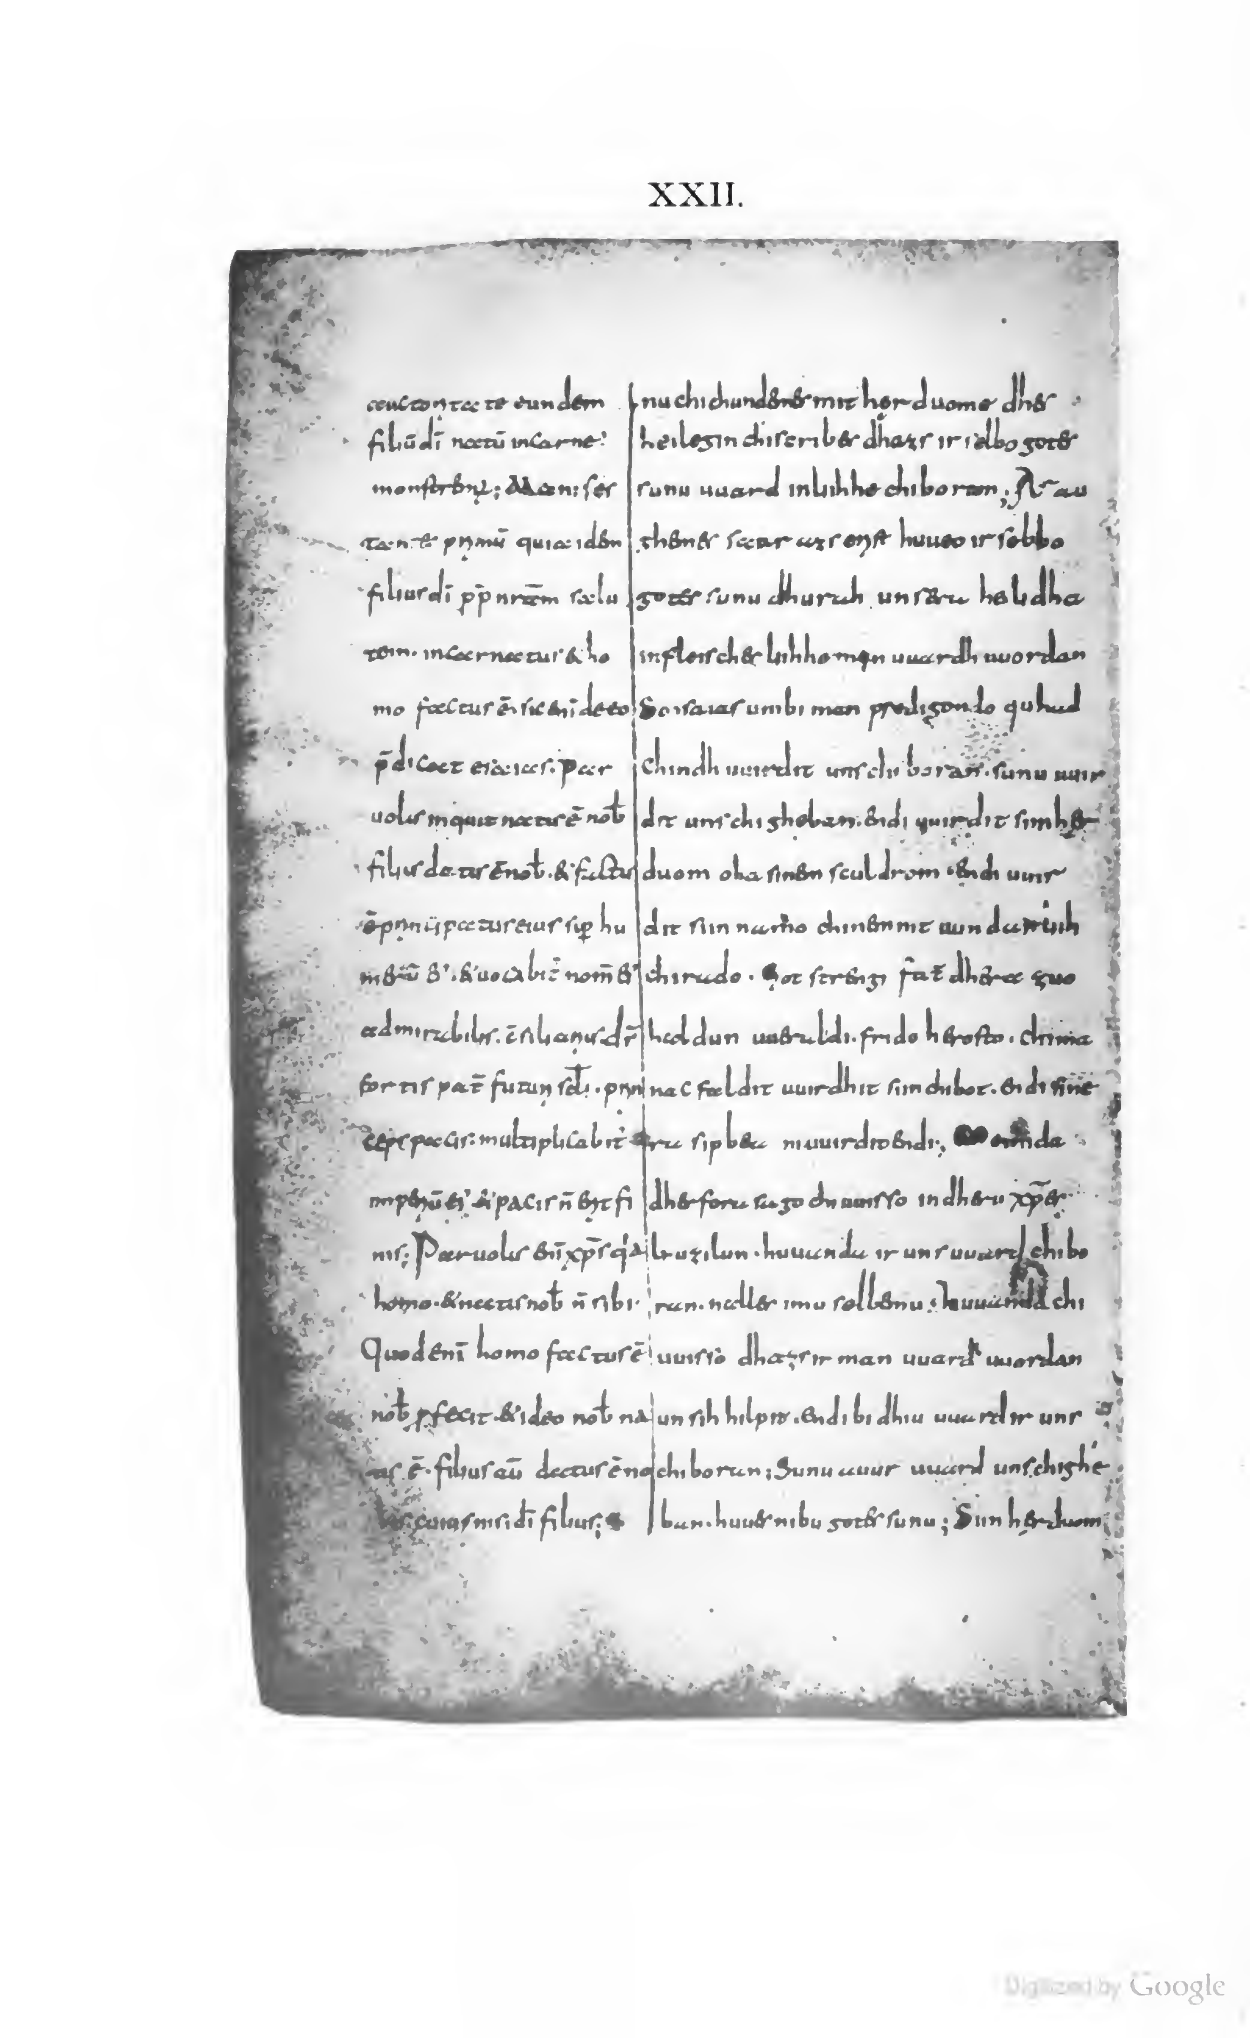 XXII.
auctoritate eundem
filiū dī natū in carne
monstrem͛; Manifes
tan̄ter prịmū quia idem
filius dī ꝓp̄ nrām salu
tem. incarnatus & ho
mo factus ē. sic enī de eo
p̄dicat esaias. Par
uolus inquit natus ē nob̄
filius datus ē nob̄. & factus
ē prịncipatus eius suꝑ hu
merū ei'. & uocabit̄ nom̄ ei'
admirabilis. c̄siliarịus. dr̄
fortis pat̄ futurị scl̄i. prịn
ceps pacis: multiplicabit̄
imperịū ei'. & pacis n̄ erịt fi
nis; Paruolus enī xp̄s q'a
homo. & natus nob̄ n̄ sibi.
Quod enī homo factus ē
nob̄ ꝓfecit. & ideo nob̄ na
tus ē. filius aū datus ē no
bis. cuius nisi dī filius;
nu chichundemes mit herduome dhes
heilegin chiscribes dhazs ir selbo gotes
sunu uuard in liihhe chiboran; Aʳau
ghemes saar azs erịst huueo ir selbo
gotes sunu dhurah unsera heilidha
in fleisches liihhamin uuardh uuordan
So isaias umbi inan predigondo quhad
Chindh uuirdit uns chiboran. sunu uuir
dit uns chigheban. endi uuirdit siin her
duom oba sinem sculdrom. endi uuir
dit siin namo chinemnit uundarliih
chirado. got strengi fat̄ dhera zuo
haldun uueraldi. frido herosto. chima
nacfaldit uuirdhit siin chibot. endi sine
ra sipbea ni uuirdit endi; inda
dher forasago chiuuisso in dheru xp̄es
luzilun. huuanda ir uns uuard chibo
ran. nalles imu selbemu. huuanda chi
uuisso dhazs ir man uuard uuordan
unsih hilpit. endi bidhiu uuard ir uns
chiboran; Sunu auur uuard uns chighe
ban. huues nibu gotes sunu; Siin herduom
Digitized by Google